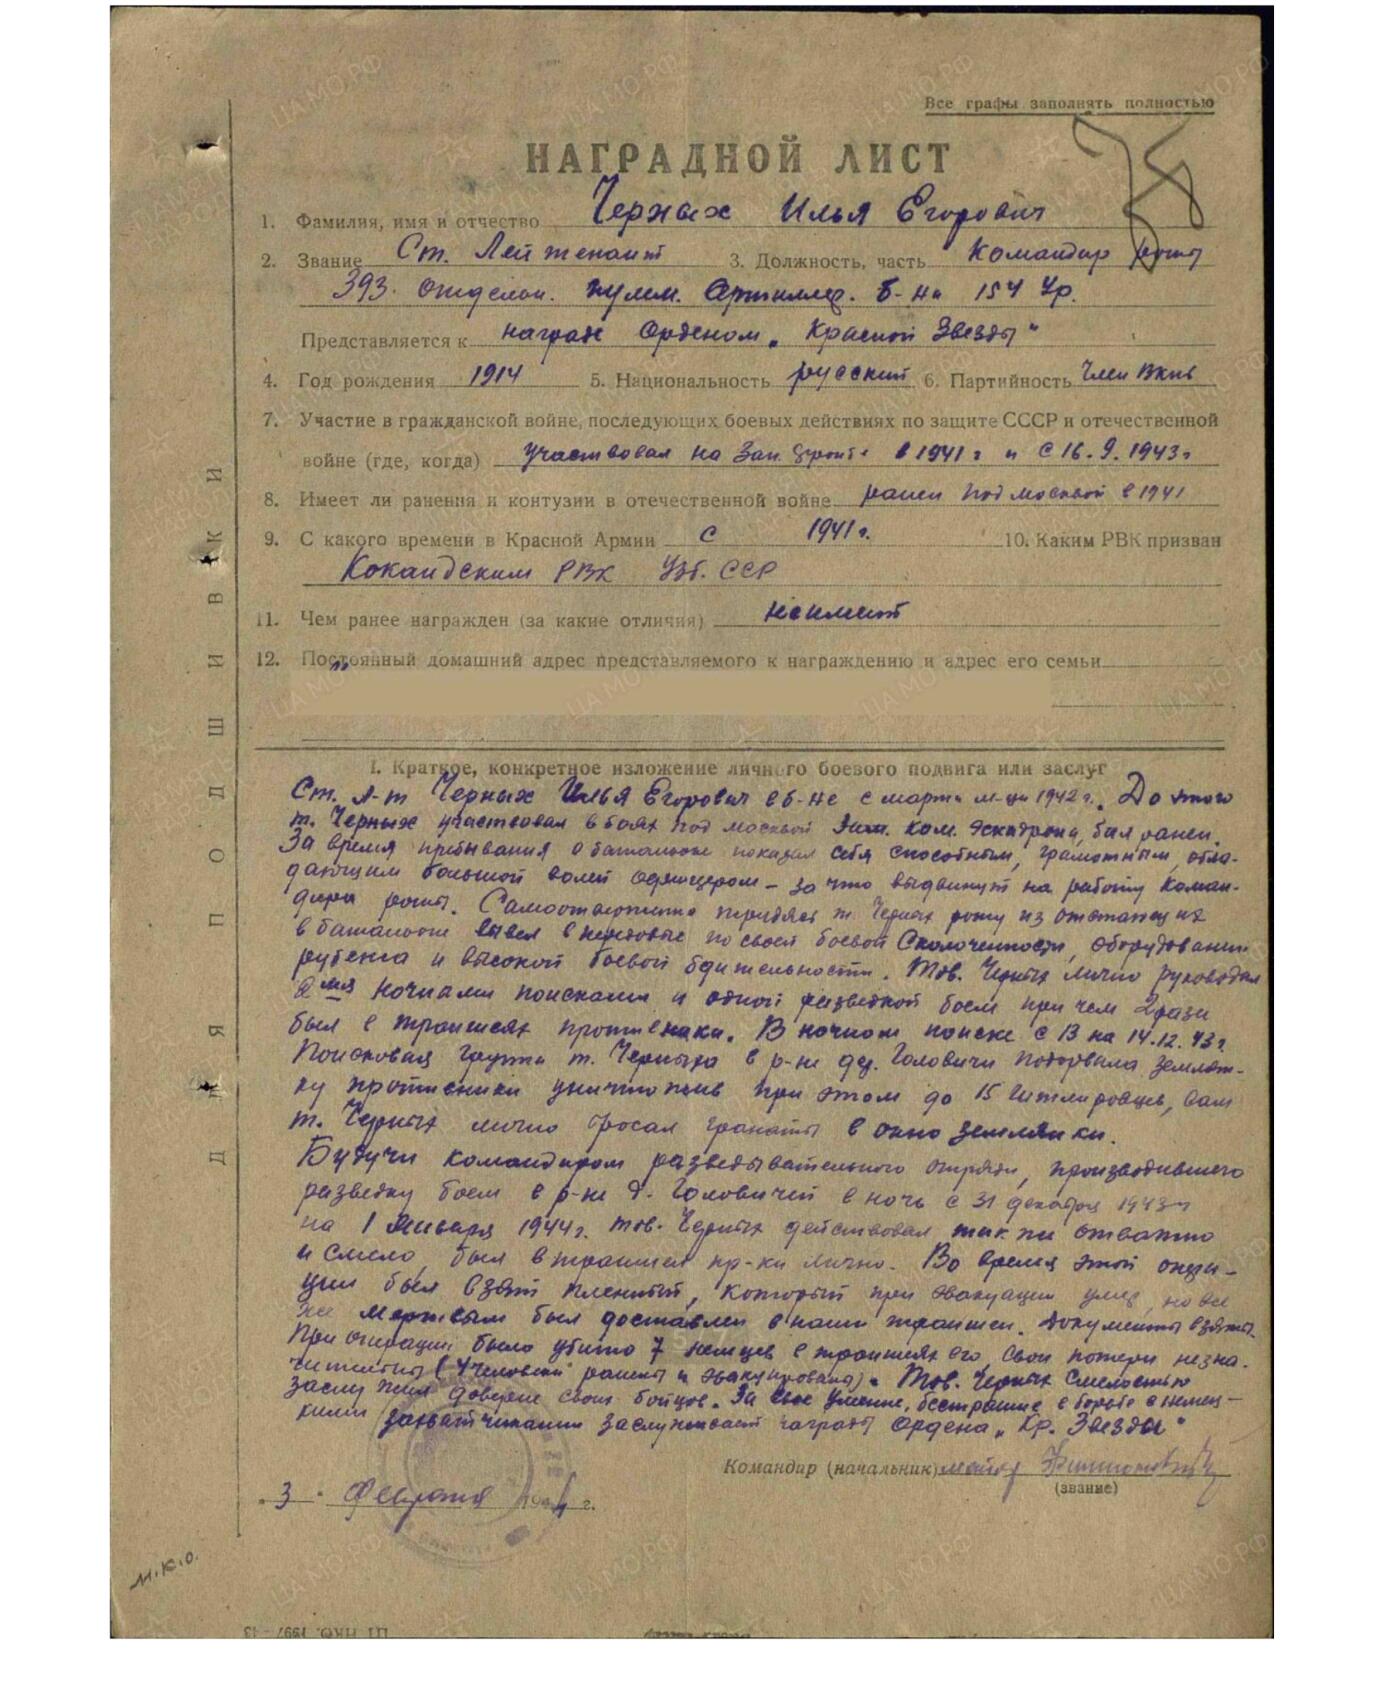 Все графы заполнять полностью
НАГРАДНОЙ ЛИСТ
1. Фамилия, имя и отчество Черных Илья Егорович
2. Звание Ст. Лейтенант 3. Должность, часть Командир роты
393 отделен. пулем. Артиллер. б-на 154 Ур.
Представляется к награде Орденом „Красной Звезды"
4. Год рождения 1914 5. Национальность русский 6. Партийность Член ВКПб
7. Участие в гражданской войне, последующих боевых действиях по защите СССР и отечественной
войне (где, когда) участвовал на Зап. фронте в 1941 г и с 16.9.1943 г
8. Имеет ли ранения и контузии в отечественной войне ранен под Москвой в 1941
9. С какого времени в Красной Армии с 1941 г. 10. Каким РВК призван
Кокандским РВК Узб. ССР
11. Чем ранее награжден (за какие отличия) не имеет
12. Постоянный домашний адрес представляемого к награждению и адрес его семьи
I. Краткое, конкретное изложение личного боевого подвига или заслуг
Ст. л-т Черных Илья Егорович в б-не с марта м-ца 1942 г. До этого
т. Черных участвовал в боях под Москвой ком. эскадрона, был ранен.
За время пребывания в батальоне показал себя способным, грамотным, обла-
дающим большой волей офицером – за что выдвинут на работу коман-
дира роты. Самоотверженно т. Черных роту из отстающих
в батальоне вывел в передовые по своей боевой Сколоченности, оборудованию
рубежа и высокой боевой бдительности. Тов. Черных лично руководил
2мя ночными поисками и одной разведкой боем при чем 2 раза
был в траншеях противника. В ночном поиске с 13 на 14.12.43 г.
Поисковая группа т. Черныха в р-не дер. Головичи подорвала землян-
ку противника уничтожив при этом до 15 гитлеровцев, сам
т. Черных лично бросал гранаты в окно землянки.
Будучи командиром разведывательного отряда, производившего
разведку боем в р-не д. Головичи в ночь с 31 декабря 1943 г
на 1 Января 1944 г. тов. Черных действовал так же отважно
и смело, был в траншеях пр-ка лично. Во время этой опера-
ции был взят пленный, который при эвакуации умер, но все
же мертвым был доставлен в наши траншеи. Документы взяты.
При операции было убито 7 немцев в траншеях его, свои потери незна-
чительны (4 человека ранены и эвакуированы). Тов. Черных смелостью
заслужил доверие своих бойцов. За свое умение, бесстрашие в борьбе с немец-
кими захватчиками заслуживает награды Ордена „Кр. Звезды"
Командир (начальник) майор
(звание)
„3" Февраля 1944 г.
м.к.о.
ДЛЯ ПОДШИВКИ